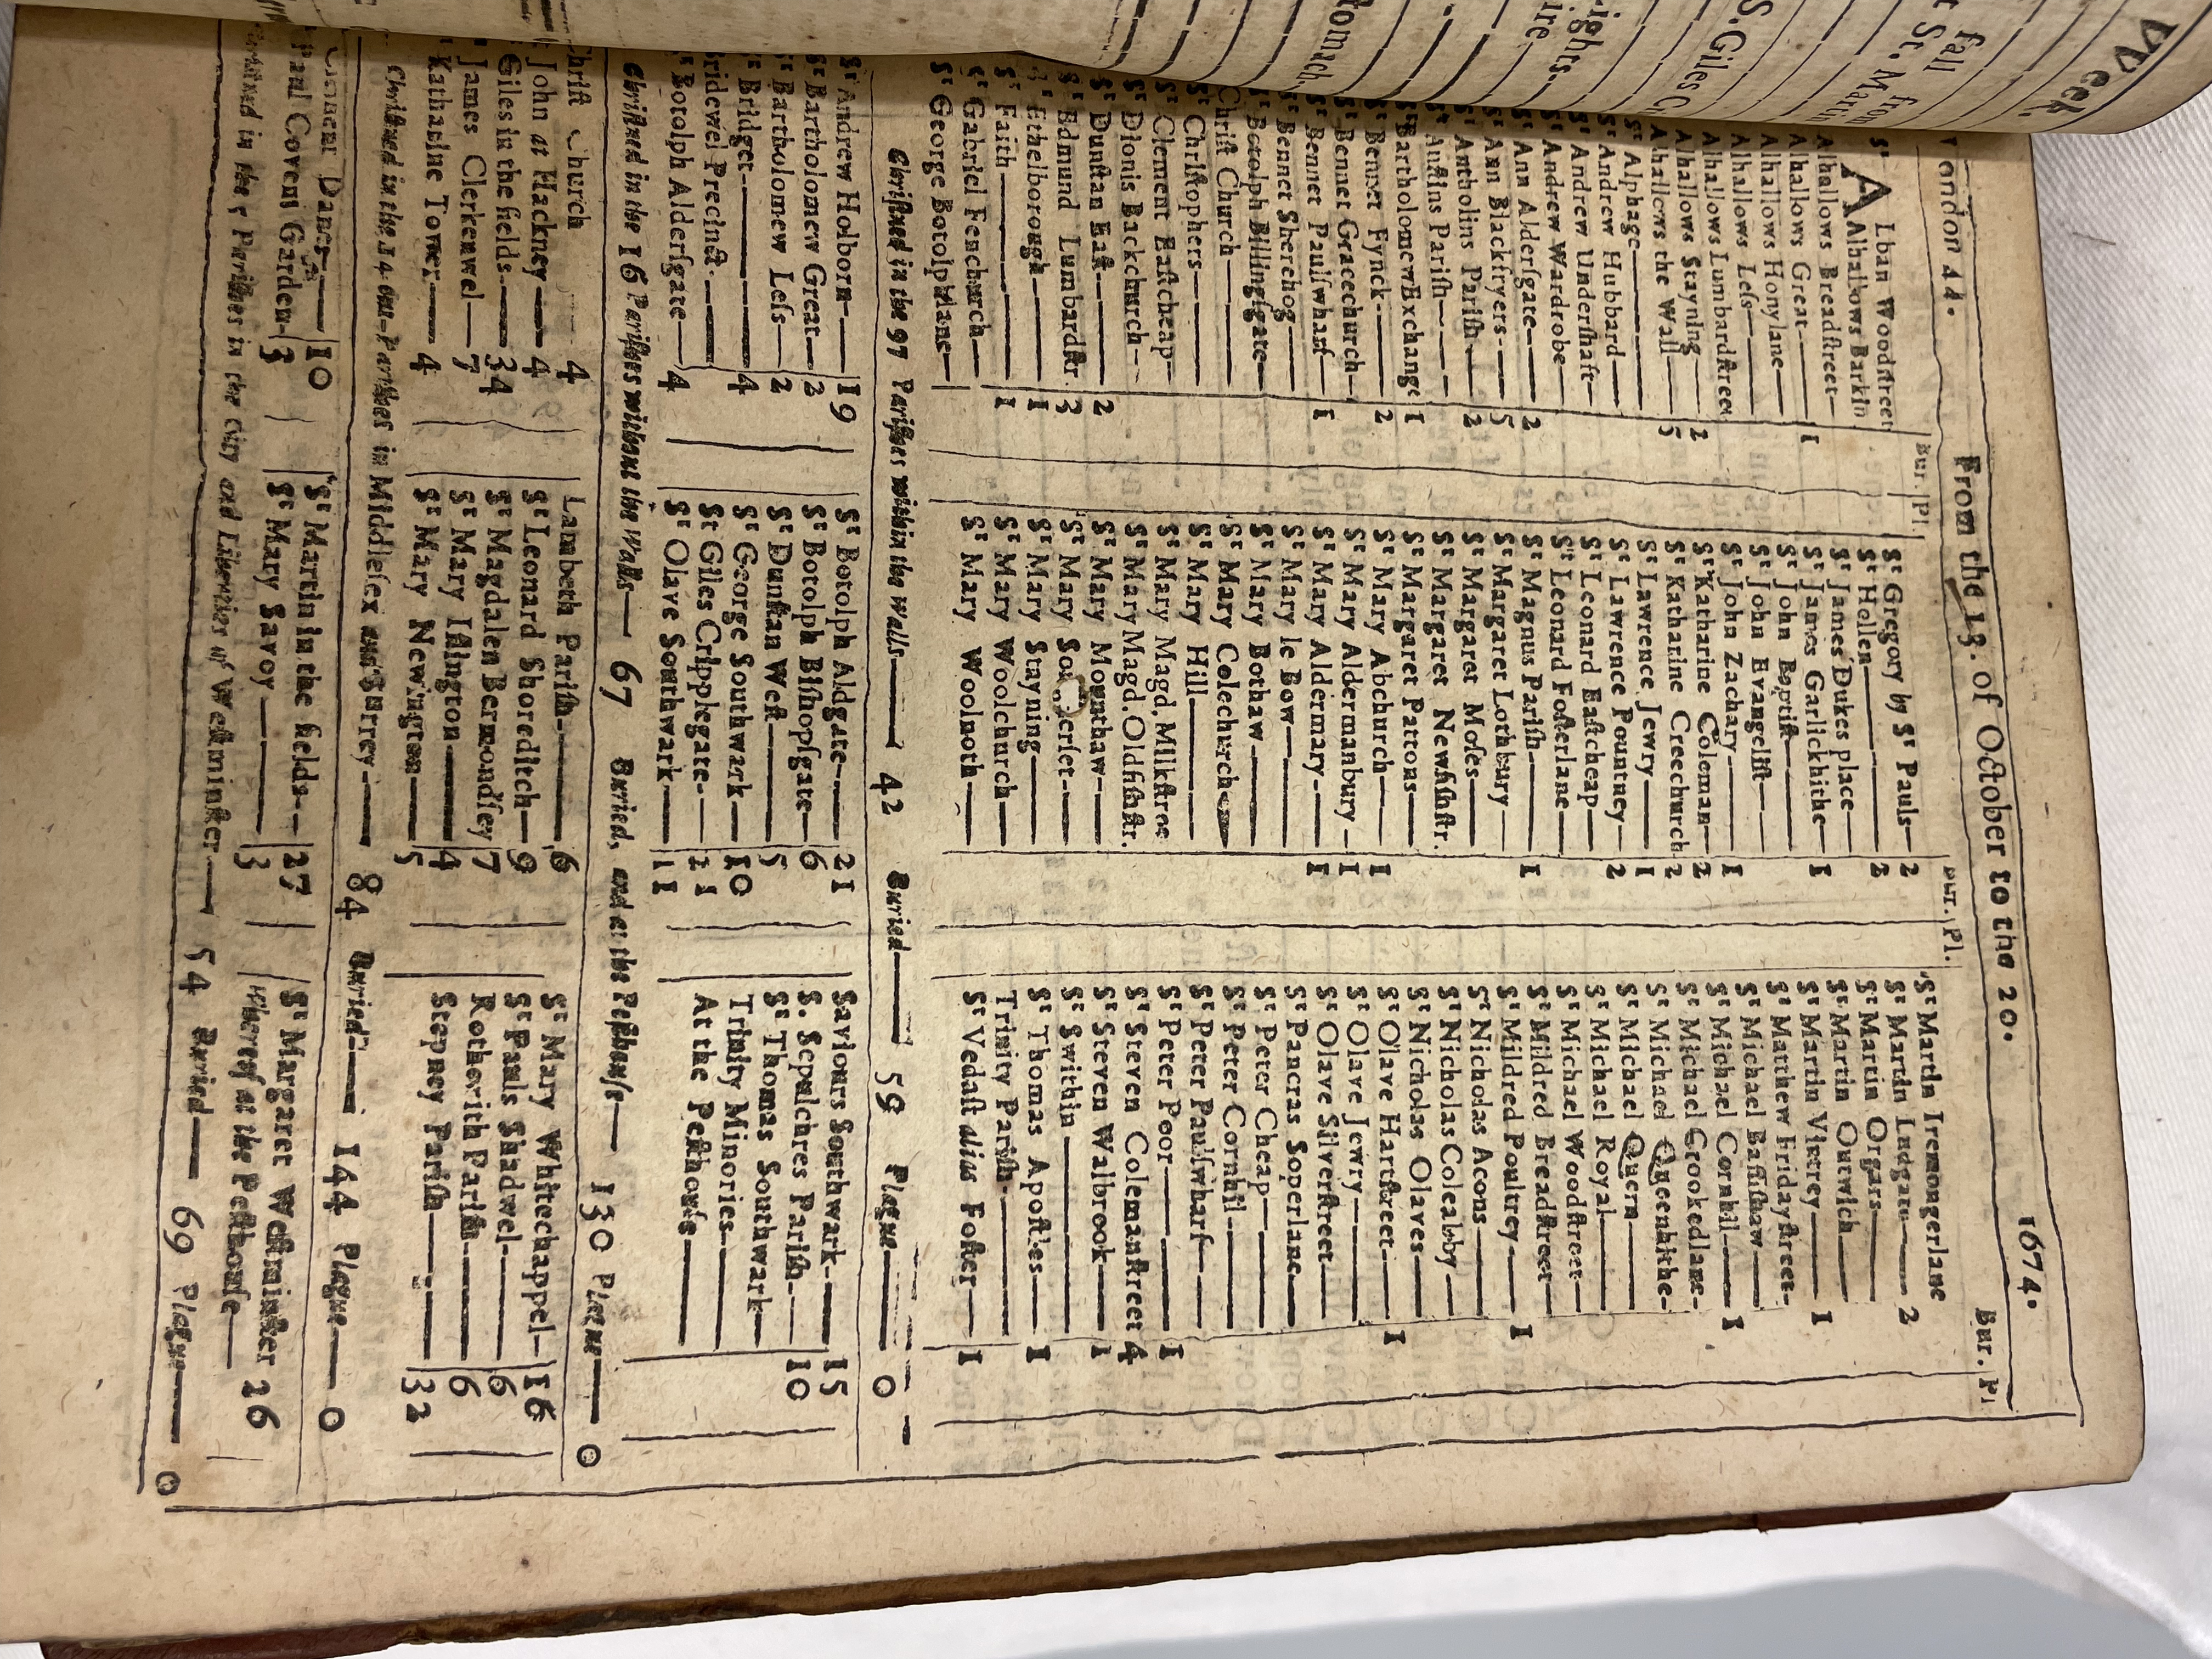 Week.
t fall from
St. Marti
S. Giles C
ights.
ire
Stomach
London 44. From the 13. of October to the 20. 1674.
Bur. Pl. Bur. Pl. Bur. Pl.
St Alban Woodstreet
Alhallows Barkin
Alhallows Breadstreet
Alhallows Great 1
Alhallows Honylane
Alhallows Less
Alhallows Lumbardstreet
Alhallows Stayning 2
Alhallows the Wall 5
St Alphage
St Andrew Hubbard
St Andrew Undershaft
St Andrew Wardrobe
St Ann Aldersgate 2
St Ann Blackfryers 5
St Antholins Parish 2
St Austins Parish
St Bartholomew Exchange 1
St Bennet Fynck 2
St Bennet Gracechurch
St Bennet Paulswharf 1
St Bennet Sherehog
St Botolph Billingsgate
Christ Church
St Christophers
St Clement Eastcheap
St Dionis Backchurch
St Dunstan East 2
St Edmund Lumbardstr. 3
St Ethelborough 1
St Faith 1
St Gabriel Fenchurch
St George Botolphlane
St Gregory by St Pauls 2
St Hellen 2
St James Dukes place
St James Garlickhithe 1
St John Baptist
St John Evangelist
St John Zachary 1
St Katharine Coleman 2
St Katharine Creechurch 2
St Lawrence Jewry 1
St Lawrence Pountney 2
St Leonard Eastcheap
St Leonard Fosterlane
St Magnus Parish 1
St Margaret Lothbury
St Margaret Moses
St Margaret Newfishstr.
St Margaret Pattons
St Mary Abchurch 1
St Mary Aldermanbury 1
St Mary Aldermary 1
St Mary le Bow
St Mary Bothaw
St Mary Colechurch
St Mary Hill
St Mary Magd. Milkstree
St Mary Magd. Oldfishstr.
St Mary Mounthaw
St Mary So erset
St Mary Stayning
St Mary Woolchurch
St Mary Woolnoth
St Martin Iremongerlane
St Martin Ludgate 2
St Martin Orgars
St Martin Outwich
St Martin Vintrey 1
St Matthew Fridaystreet
St Michael Bassishaw
St Michael Cornhil 1
St Michael Crookedlane
St Michael Queenhithe
St Michael Quern
St Michael Royal
St Michael Woodstreet
St Mildred Breadstreet
St Mildred Poultrey 1
St Nicholas Acons
St Nicholas Coleabby
St Nicholas Olaves
St Olave Hartstreet 1
St Olave Jewry
St Olave Silverstreet
St Pancras Soperlane
St Peter Cheap
St Peter Cornhil
St Peter Paulswharf
St Peter Poor 1
St Steven Colemanstreet 4
St Steven Walbrook 1
St Swithin
St Thomas Apostles 1
Trinity Parish
St Vedast alias Foster 1
Christned in the 97 Parishes within the Walls 42 Buried 59 Plague 0
St Andrew Holborn 19
St Bartholomew Great 2
St Bartholomew Less 2
St Bridget 4
Bridewel Precinct
St Botolph Aldersgate 4
St Botolph Aldgate 21
St Botolph Bishopsgate 6
St Dunstan West 5
St George Southwark 10
St Giles Cripplegate 21
St Olave Southwark 11
Saviours Southwark 15
S. Sepulchres Parish 10
St Thomas Southwark
Trinity Minories
At the Pesthouse
Christned in the 16 Parishes without the Walls 67 Buried, and at the Pesthouse 130 Plague 0
Christ Church 4
St John at Hackney 4
St Giles in the fields 34
St James Clerkenwel 7
St Katharine Tower 4
Lambeth Parish 6
St Leonard Shoreditch 9
St Magdalen Bermondsey 7
St Mary Islington 4
St Mary Newington 5
St Mary Whitechappel 16
St Pauls Shadwel 6
Rotherith Parish 6
Stepney Parish 32
Christned in the 14 out-Parishes in Middlesex and Surrey 84 Buried 144 Plague 0
Clement Danes 10
Paul Covent Garden 3
St Martin in the fields 27
St Mary Savoy 3
St Margaret Westminster 26
Whereof at the Pesthouse
Christned in the 5 Parishes in the City and Liberties of Westminster 54 Buried 69 Plague 0